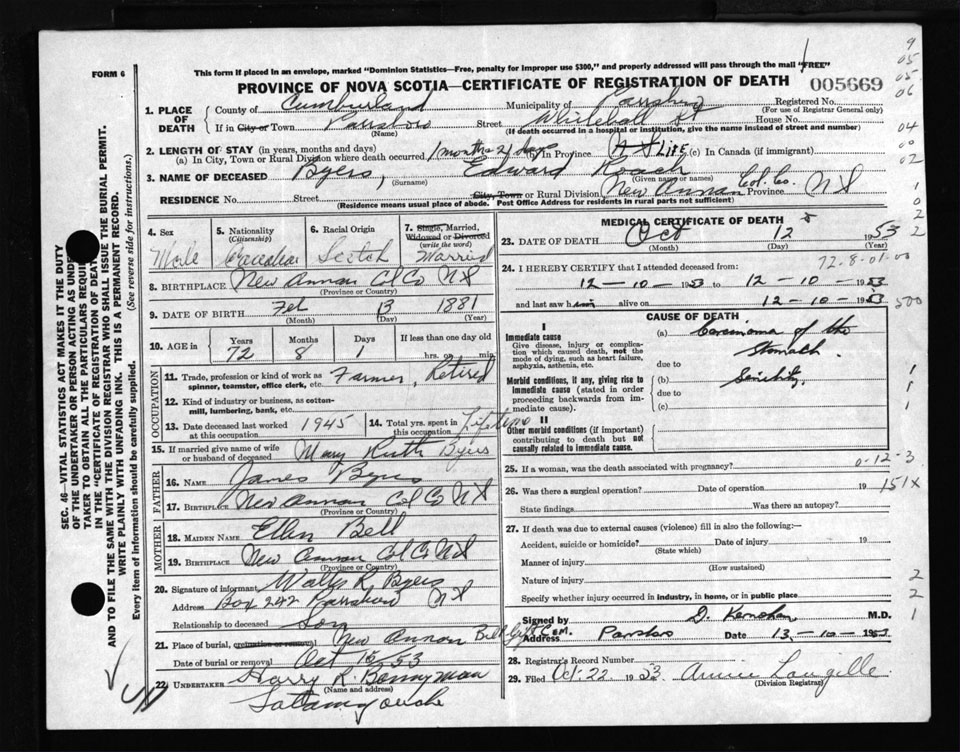 FORM 6
This form if placed in an envelope, marked "Dominion Statistics—Free, penalty for improper use $300," and properly addressed will pass through the mail "FREE"
PROVINCE OF NOVA SCOTIA—CERTIFICATE OF REGISTRATION OF DEATH
005669
1. PLACE OF DEATH
County of Cumberland Municipality of Parrsboro Registered No.
(For use of Registrar General only)
If in City or Town Parrsboro Street Whitehall St House No.
(Name) (If death occurred in a hospital or institution, give the name instead of street and number)
2. LENGTH OF STAY (in years, months and days)
(a) In City, Town or Rural Division where death occurred 1 month 21 days (b) in Province LIFE (c) In Canada (if immigrant)
3. NAME OF DECEASED Byers, Edward Roach
(Surname) (Given name or names)
RESIDENCE No. Street City, Town or Rural Division New Annan Col. Co. Province N S
(Residence means usual place of abode. Post Office Address for residents in rural parts not sufficient)
4. Sex 5. Nationality (Citizenship) 6. Racial Origin 7. Single, Married, Widowed or Divorced (write the word)
Male Canadian Scotch Married
8. BIRTHPLACE New Annan Col Co N S
(Province or Country)
9. DATE OF BIRTH Feb 13 1881
(Month) (Day) (Year)
10. AGE in Years Months Days If less than one day old
72 8 1 hrs. or min.
OCCUPATION
11. Trade, profession or kind of work as spinner, teamster, office clerk, etc. Farmer, Retired
12. Kind of industry or business, as cotton-mill, lumbering, bank, etc.
13. Date deceased last worked at this occupation 1945 14. Total yrs. spent in this occupation Lifetime
15. If married give name of wife or husband of deceased Mary Ruth Byers
FATHER
16. NAME James Byers
17. BIRTHPLACE New Annan Col Co N S
(Province or Country)
MOTHER
18. MAIDEN NAME Ellen Bell
19. BIRTHPLACE New Annan Col Co N S
(Province or Country)
20. Signature of informant Walter R. Byers
Address Box 242 Parrsboro N S
Relationship to deceased Son
21. Place of burial, cremation or removal New Annan Cem.
Date of burial or removal Oct 15/53
22. UNDERTAKER Harry R. Bonnyman
(Name and address)
Tatamagouche
MEDICAL CERTIFICATE OF DEATH
23. DATE OF DEATH Oct 12 1953
(Month) (Day) (Year)
72-8-01-00
24. I HEREBY CERTIFY that I attended deceased from:
12-10-1953 to 12-10-1953
and last saw him alive on 12-10-1953
CAUSE OF DEATH
I
Immediate cause
Give disease, injury or complication which caused death, not the mode of dying, such as heart failure, asphyxia, asthenia, etc.
(a) Carcinoma of the stomach
due to
Morbid conditions, if any, giving rise to immediate cause (stated in order proceeding backwards from immediate cause).
(b) Senility
due to
(c)
II
Other morbid conditions (if important) contributing to death but not causally related to immediate cause.
25. If a woman, was the death associated with pregnancy?
0-12-3
26. Was there a surgical operation? Date of operation 19
151X
State findings Was there an autopsy?
27. If death was due to external causes (violence) fill in also the following:—
Accident, suicide or homicide? Date of injury 19
(State which)
Manner of injury
(How sustained)
Nature of injury
Specify whether injury occurred in industry, in home, or in public place
Signed by M.D.
Address Parrsboro Date 13-10-1953
28. Registrar's Record Number
29. Filed Oct. 22 1953 Annie Langille
(Division Registrar)
SEC. 46—VITAL STATISTICS ACT MAKES IT THE DUTY
OF THE UNDERTAKER OR PERSON ACTING AS
TAKER TO OBTAIN ALL THE PARTICULARS
IN THE "CERTIFICATE OF REGISTRATION OF
AND TO FILE THE SAME WITH THE DIVISION REGISTRAR WHO SHALL ISSUE THE BURIAL PERMIT.
WRITE PLAINLY WITH UNFADING INK. THIS IS A PERMANENT RECORD.
Every item of Information should be carefully supplied. (See reverse side for instructions.)
9
05
05
06
04
00
02
1
0
2
2
500
1
1
1
2
2
1